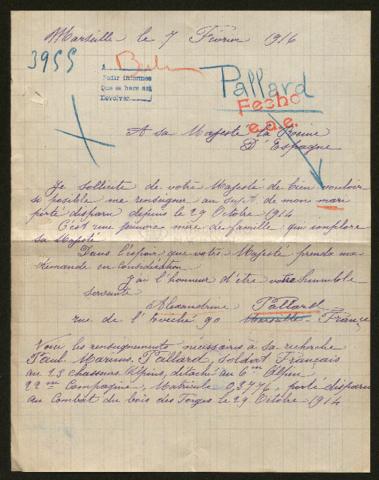 Marseille le 7 Février 1916
3955
Pallard
Pedir informes
Que se hara así
Devolver
Fecho
e.a.e.
A sa Majesté la Reine
D'Espagne
Je sollicite de votre Majesté de bien vouloir
si posible me renseigner au sujet de mon mari
porté disparu depuis le 29 Octobre 1914
C'est une pauvre mère de famille qui implore
sa Majesté
Dans l'espoir que votre Majesté prendra ma
demande en considération
J'ai l'honneur d'être votre humble
servante
Alexandrine Pallard
rue de l'Evéché 90 Marseille, France
Voici les renseignements nécessaires à sa recherche
Paul Marius Pallard, Soldat Français
au 23 chasseurs Alpins, détaché au 6me Alpin
22me Compagnie, Matricule 03776, porté disparu
au Combat du bois des Forges le 29 Octobre 1914